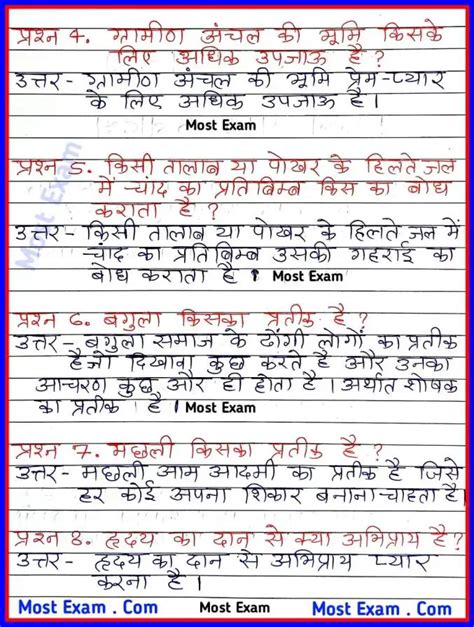 प्रश्न 4. ग्रामीण अंचल की भूमि किसके
लिए अधिक उपजाऊ है ?
उत्तर- ग्रामीण अंचल की भूमि प्रेम-प्यार
के लिए अधिक उपजाऊ है।
Most Exam
प्रश्न 5. किसी तालाब या पोखर के हिलते जल
में चांद का प्रतिबिम्ब किस का बोध
कराता है ?
उत्तर- किसी तालाब या पोखर के हिलते जल में
चांद का प्रतिबिम्ब उसकी गहराई का
बोध कराता है। Most Exam
Most Exam
प्रश्न 6. बगुला किसका प्रतीक है ?
उत्तर- बगुला समाज के ढोंगी लोगों का प्रतीक
है जो दिखावा कुछ करते है और उनका
आचरण कुछ और ही होता है। अर्थात शोषक
का प्रतीक है। Most Exam
प्रश्न 7. मछली किसका प्रतीक है ?
उत्तर- मछली आम आदमी का प्रतीक है जिसे
हर कोई अपना शिकार बनाना चाहता है।
प्रश्न 8. हृदय का दान से क्या अभिप्राय है?
उत्तर- हृदय का दान से अभिप्राय प्यार
करना है।
Most Exam . Com Most Exam Most Exam . Com